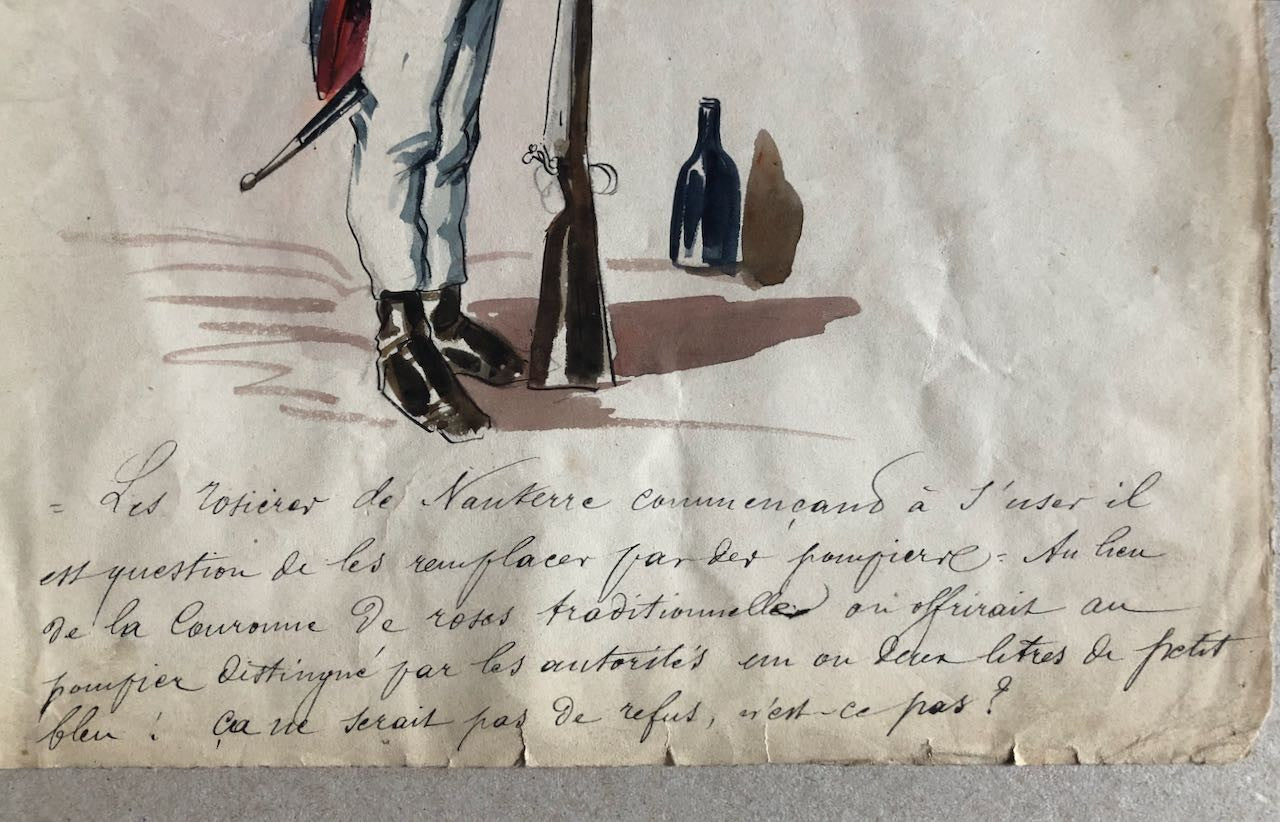 = Les rosières de Nanterre commençand à s'user il
est question de les remplacer par des pompiers = Au lieu
de la Couronne de roses traditionnelles on offrirait au
pompier distingué par les autorités un ou deux litres de petit
bleu ! ça ne serait pas de refus, n'est-ce pas ?